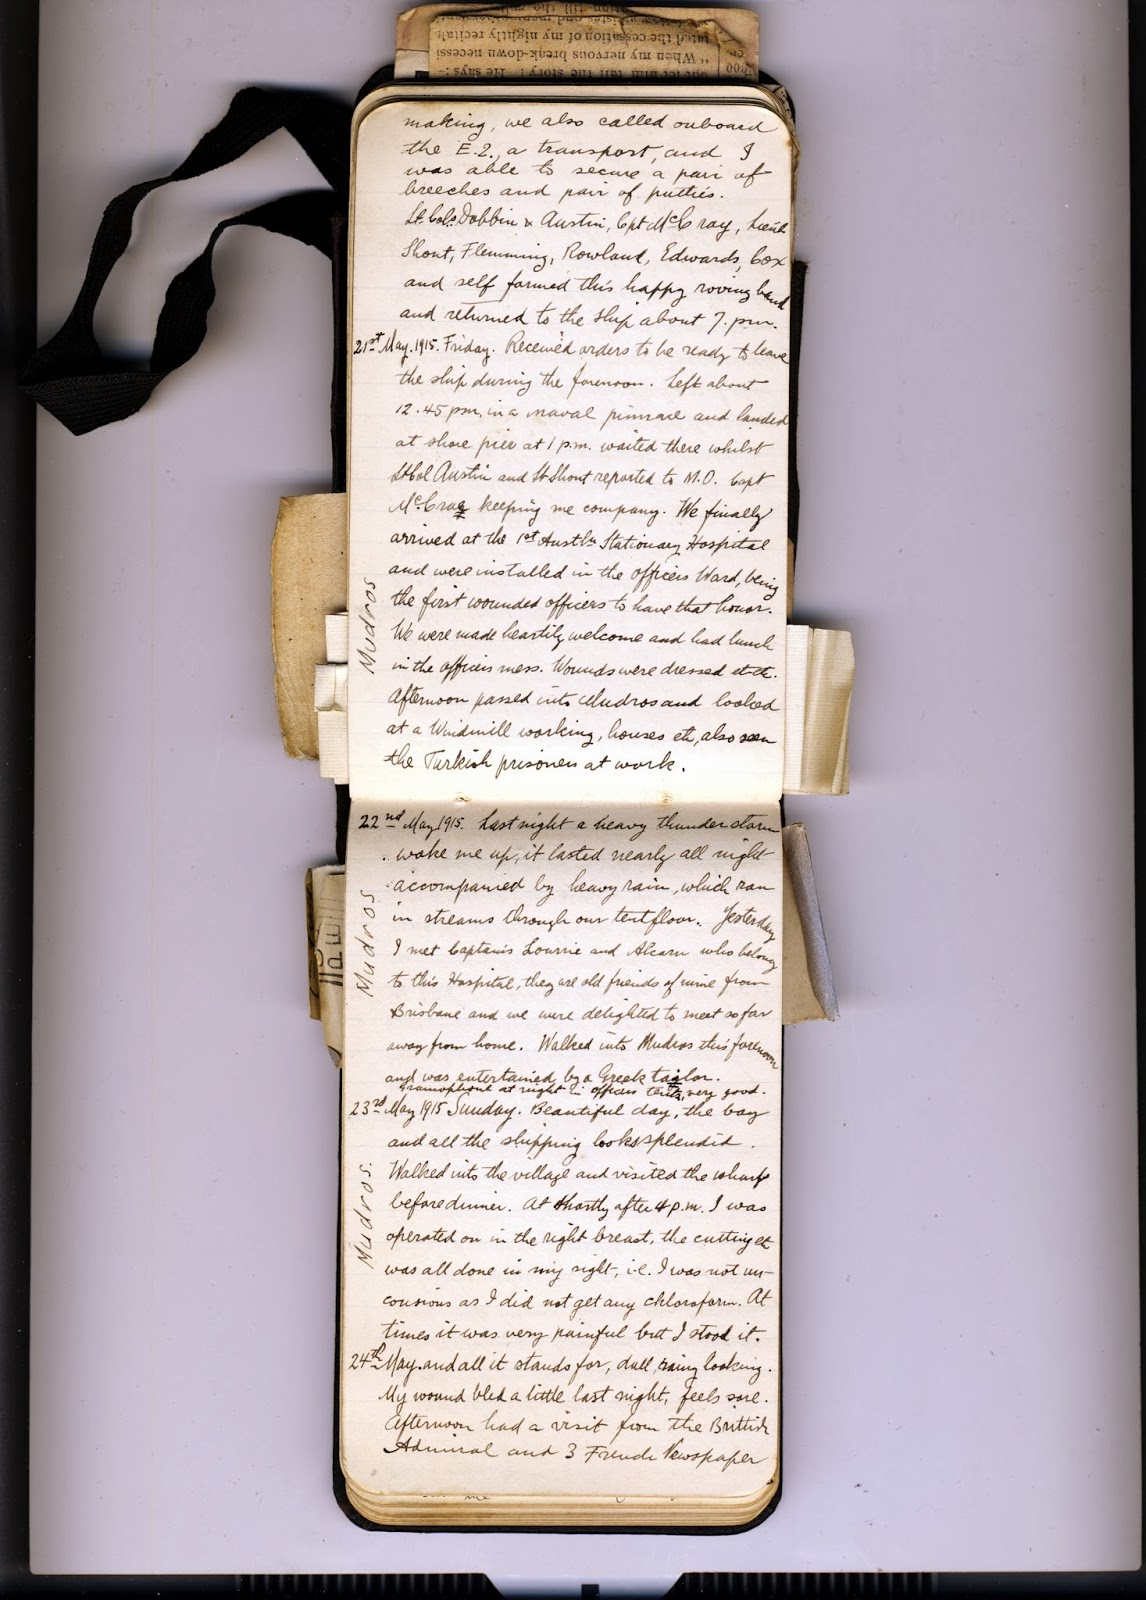 making, we also called onboard
the E.2, a transport, and I
was able to secure a pair of
breeches and pair of putties.
Lt Cols. Dobbin & Austin, Cpt McCray, Lieut
Shout, Flemming, Rowland, Edwards, Cox
and self formed this happy roving band
and returned to the ship about 7. pm.
21st May. 1915. Friday. Received orders to be ready to leave
the ship during the forenoon. Left about
12.45 pm. in a naval pinnace and landed
at shore pier at 1 p.m. waited there whilst
Lt Col Austin and Lt Shout reported to M.O. Capt
McCrae keeping me company. We finally
arrived at the 1st Austln Stationary Hospital
and were installed in the officers Ward, being
the first wounded officers to have that honor.
We were made heartily welcome and had lunch
in the officers mess. Wounds were dressed etc.
Afternoon passed into Mudros and looked
at a Windmill working, houses etc, also seen
the Turkish prisoners at work.
Mudros
22nd May 1915. Last night a heavy thunder storm
woke me up, it lasted nearly all night
accompanied by heavy rain, which ran
in streams through our tent floor. Yesterday
I met Captains Lowrie and Ahearn who belong
to this Hospital, they are old friends of mine from
Brisbane and we were delighted to meet so far
away from home. Walked into Mudros this forenoon
and was entertained by a Greek tailor.
gramophone at night in officers tent, very good.
Mudros
23rd May 1915 Sunday. Beautiful day, the bay
and all the shipping looks splendid.
Walked into the village and visited the wharf
before dinner. At shortly after 4 p.m. I was
operated on in the right breast, the cutting etc
was all done in my sight, i.e. I was not un-
consious as I did not get any chloroform. At
times it was very painful but I stood it.
Mudros.
24th May. and all it stands for, dull, rainy looking.
My wound bled a little last night, feels sore.
Afternoon had a visit from the Brittish
Admiral and 3 French Newspaper
out let him tell the story! He says:-
"When my nervous break-down necessi
tated the cessation of my nightly recitals